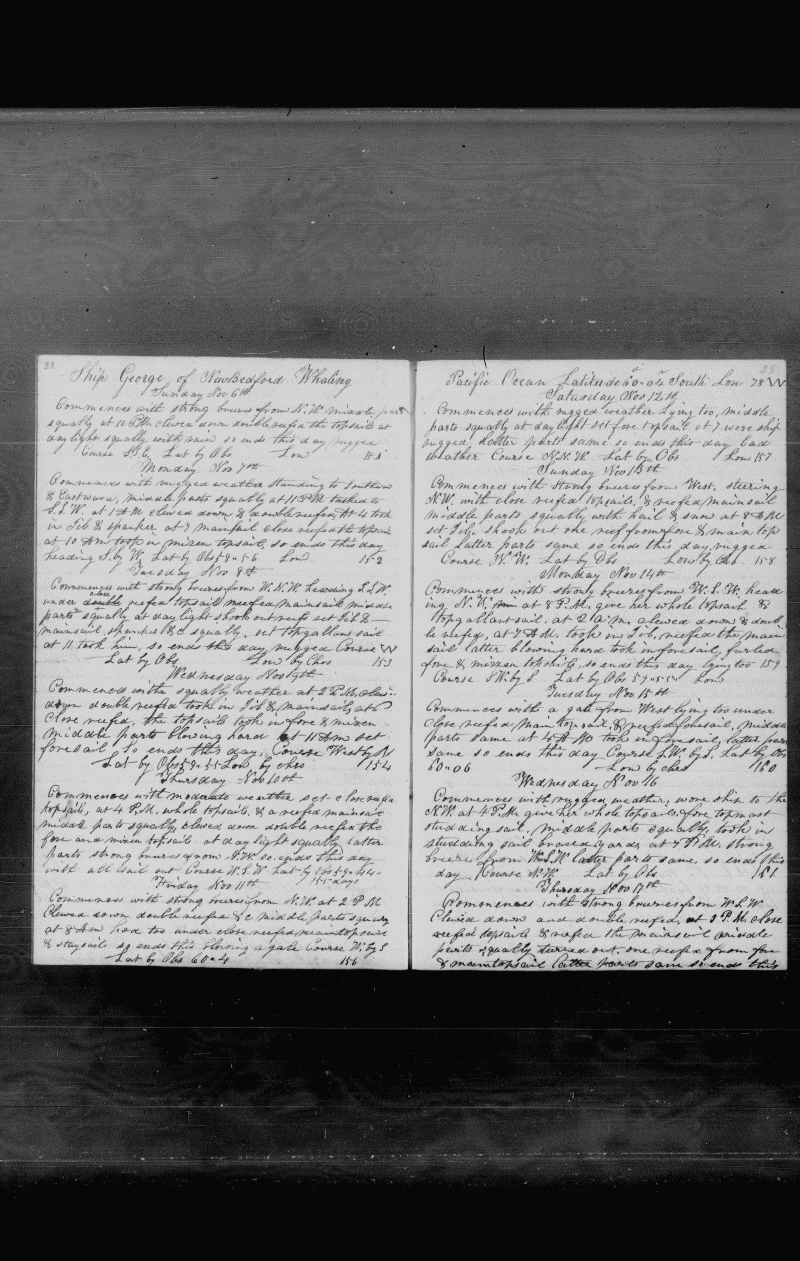 28
Ship George, of NewBedford Whaling
Sunday Nov 6th
Commences with strong breeses from N.W. middle part
squally at 10 P.M. clewed down double reefed the topsails at
daylight squally with rain so ends this day rugged
Course S.S.E. Lat by Obs Lon 151
Monday Nov 7th
Commences with rugged weather Standing to Southward
& Eastward, middle parts squally at 11 P.M tacked to
S.S.W. at 1 A M clewed down & double reefed, At 4 took
in Jib & spanker at 7 mainsail close reefed the topsails
at 10 AM took in mizen topsail, so ends this day
heading S. by W. Lat by Obs 58-56 Lon 152
Tuesday Nov 8th
Commences with strong breeses from W.N.W. heading S.S.W.
under close reefed topsails reefed mainsail middle
parts squally at day light shook out reefs set Jib &
mainsail spanker &c squally. set topgallant sail
at 11 took him, so ends this day, rugged Course W
Lat by Obs Lon by Chro 153
Wednesday Nov 9th
Commenced with squally weather at 2 P.M. clew-
down double reefed took in Jib & mainsail, at 6
Close reefed, the topsails took in fore & mizen
middle parts blowing hard at 11 Am set
foresail so ends this day, Course West by N
Lat by Obs 58-55 Lon by chro 154
Thursday Nov 10th
Commences with moderate weather set close reefed
topsails, at 4 P.M, whole topsails, & a reefed mainsail
middle parts squally, clewed down double reefed the
fore and mizen topsail at day light squally latter
parts strong breeses from N.W. so ends this day
with all sail out Course W.S.W Lat by Obs 59-44
155 days
Friday Nov 11th
Commences with strong breeses from N.W. at 2 P.M
Clewed down double reefed &c middle parts squally
at 8 Am hove too under close reefed maintopsail
& staysails so ends this blowing a gale Course W. by S
Lat by Obs 60-4 156
28
Pacific Ocean Latitude 60-04 South Lon 78 W
Saturday Nov 12th
Commences with rugged weather Lying too, middle
parts squally at daylight set fore topsail at 7 wore ship
rugged, latter parts same so ends this day bad
weather Course N.N.W. Lat by Obs Lon 157
Sunday Nov 13th
Commences with strong breeses from West. steering
N.W. with close reefed topsails, & reefed mainsail
middle parts squally with hail & snow at 8 A M
set Jib, shook out one reef from fore & main top
sail latter parts same so ends this day, rugged
Course N.W. Lat by Obs Lon by Chro 158
Monday Nov 14th
Commences with strong breeses from W.S.W. head
ing N.W. at 8 P.M. give her whole topsail &
topgallantsail, at 2 A.m. clewed down & doub
le reefed, at 7 A.M. took in Jib, reefed the main
sail latter blowing hard took in foresail, furled
fore & mizzen topsails, so ends this day lying too 159
Course S.W. by S Lat by Obs 59-55 Lon
Tuesday Nov 15th
Commences with a gale from West lying too under
close reefed main topsail & reefed foresail, middle
parts same at 4 A M took in foresail, latter parts
same so ends this day Course S.W. by S. Lat by Obs
60-06 Lon by chro 160
Wednesday Nov 16
Commences with rugged weather, wore ship to the
N.W. at 4 P.M. give her whole topsails, fore topmast
studding sail. middle parts squally, took in
studding sail braced yards, at 7 P.M. strong
breeses from W.S.W latter parts same, so ends this
day Course N.W. Lat by Obs 161
Thursday Nov 17th
Commences with strong breeses from W.S.W.
Clewed down and double reefed, at 9 P.M. close
reefed topsails & reefed the mainsail middle
parts squally turned out one reef from fore
& maintopsail latter parts same so ends this